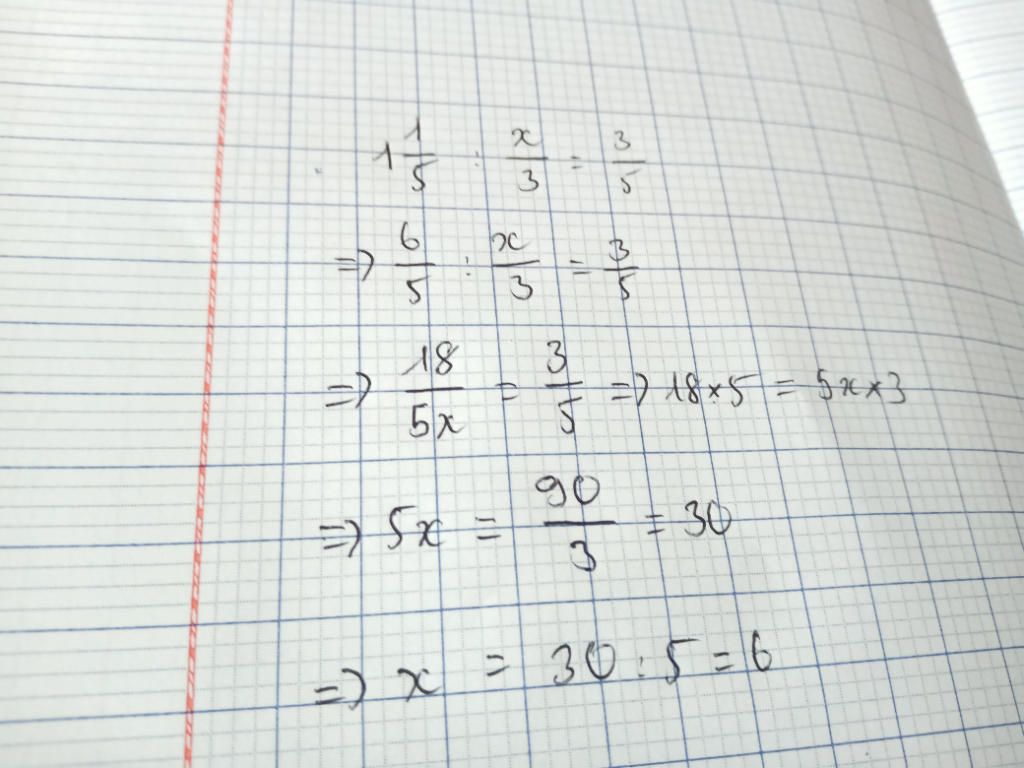 1 1/5 : x/3 = 3/5
=> 6/5 : x/3 = 3/5
=> 18/5x = 3/5 => 18 × 5 = 5x × 3
=> 5x = 90/3 = 30
=> x = 30 : 5 = 6